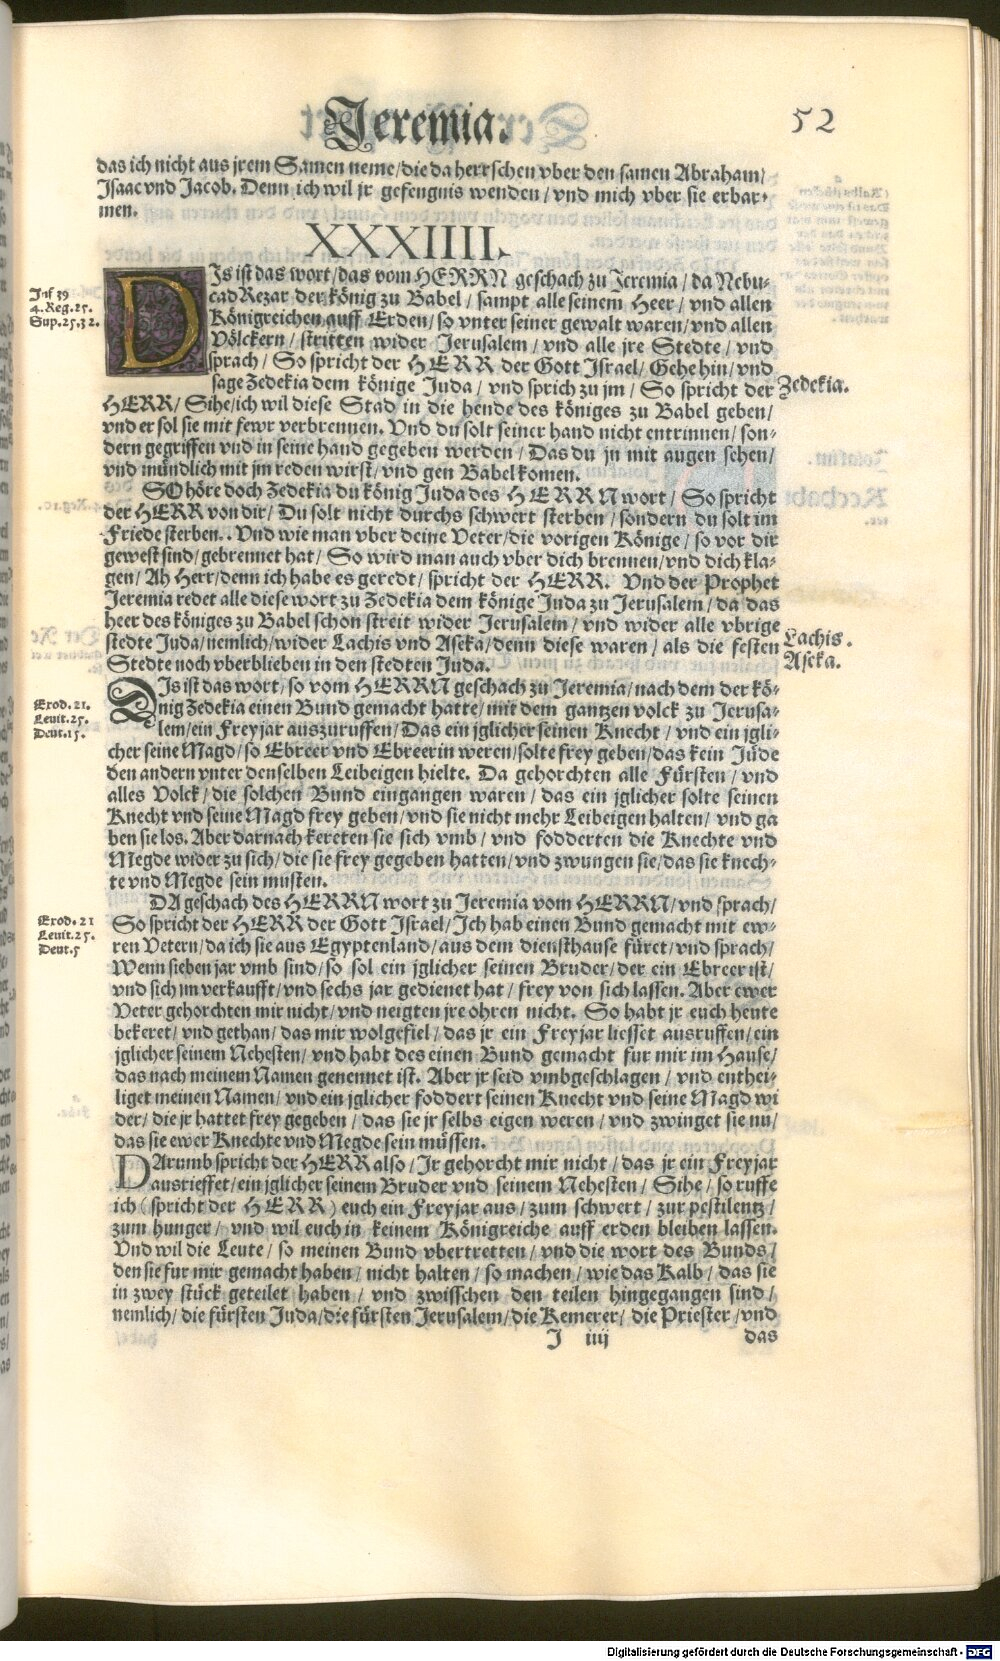 Jeremia.
52
das ich nicht aus jrem Samen neme/die da herrschen vber den samen Abraham/
Isaac vnd Jacob. Denn ich wil jr gefengnis wenden/vnd mich vber sie erbar-
men.
XXXIIII.
Inf 39
4. Reg. 25.
Sup. 25. 32.
DIs ist das wort/das vom HERRN geschach zu Jeremia/da Nebu-
cad Rezar der könig zu Babel/sampt alle seinem Heer/vnd allen
Königreichen auff Erden/so vnter seiner gewalt waren/vnd allen
Völckern/stritten wider Jerusalem/vnd alle jre Stedte/vnd
sprach/So spricht der HERR der Gott Israel/Gehe hin/vnd
sage Zedekia dem könige Juda/vnd sprich zu jm/So spricht der
Zedekia.
HERR/Sihe/ich wil diese Stad in die hende des königes zu Babel geben/
vnd er sol sie mit fewr verbrennen. Vnd du solt seiner hand nicht entrinnen/son-
dern gegriffen vnd in seine hand gegeben werden/Das du jn mit augen sehen/
vnd mündlich mit jm reden wirst/vnd gen Babel komen.
SO höre doch Zedekia du könig Juda des HERRN wort/So spricht
der HERR von dir/Du solt nicht durchs schwert sterben/sondern du solt im
Friede sterben.. Vnd wie man vber deine Veter/die vorigen Könige/so vor dir
gewest sind/gebrennet hat/So wird man auch vber dich brennen/vnd dich kla-
gen/Ah Herr/denn ich habe es geredt/spricht der HERR. Vnd der Prophet
Jeremia redet alle diese wort zu Zedekia dem könige Juda zu Jerusalem/da das
heer des königes zu Babel schon streit wider Jerusalem/vnd wider alle vbrige
stedte Juda/nemlich/wider Lachis vnd Aseka/denn diese waren/als die festen
Stedte noch vberblieben in den stedten Juda.
Lachis.
Aseka.
DIs ist das wort/so vom HERRN geschach zu Jeremia/nach dem der kö-
nig Zedekia einen Bund gemacht hatte/mit dem gantzen volck zu Jerusa-
lem/ein Freyjar auszuruffen/Das ein jglicher seinen Knecht/vnd ein jgli-
cher seine Magd/so Ebreer vnd Ebreerin weren/solte frey geben/das kein Jüde
den andern vnter denselben Leibeigen hielte. Da gehorchten alle Fürsten/vnd
alles Volck/die solchen Bund eingangen waren/das ein jglicher solte seinen
Knecht vnd seine Magd frey geben/vnd sie nicht mehr Leibeigen halten/vnd ga
ben sie los. Aber darnach kereten sie sich vmb/vnd fodderten die Knechte vnd
Megde wider zu sich/die sie frey gegeben hatten/vnd zwungen sie/das sie knech-
te vnd Megde sein musten.
Exod. 21.
Leuit. 25.
Deut. 15.
DA geschach des HERRN wort zu Jeremia vom HERRN/vnd sprach/
So spricht der HERR der Gott Israel/Ich hab einen Bund gemacht mit ew-
ren Vetern/da ich sie aus Egyptenland/aus dem diensthause füret/vnd sprach/
Wenn sieben jar vmb sind/so sol ein jglicher seinen Bruder/der ein Ebreer ist/
vnd sich im verkaufft/vnd sechs jar gedienet hat/frey von sich lassen. Aber ewer
Veter gehorchten mir nicht/vnd neigten jre ohren nicht. So habt jr euch heute
bekeret/vnd gethan/das mir wolgefiel/das jr ein Freyjar liesset ausruffen/ein
jglicher seinem Nehesten/vnd habt des einen Bund gemacht fur mir im Hause/
das nach meinem Namen genennet ist. Aber jr seid vmbgeschlagen/vnd enthei-
liget meinen Namen/vnd ein jglicher foddert seinen Knecht vnd seine Magd wi
der/die jr hattet frey gegeben/das sie jr selbs eigen weren/vnd zwinget sie nu/
das sie ewer Knechte vnd Megde sein müssen.
Exod. 21
Leuit. 25.
Deut. 5
DArumb spricht der HERR also/Ir gehorcht mir nicht/das jr ein Freyjar
ausrieffet/ein jglicher seinem Bruder vnd seinem Nehesten/Sihe/so ruffe
ich (spricht der HERR) euch ein Freyjar aus/zum schwert/zur pestilentz/
zum hunger/vnd wil euch in keinem Königreiche auff erden bleiben lassen.
Vnd wil die Leute/so meinen Bund vbertretten/vnd die wort des Bunds/
den sie fur mir gemacht haben/nicht halten/so machen/wie das Kalb/das sie
in zwey stück geteilet haben/vnd zwisschen den teilen hingegangen sind/
nemlich/die fürsten Juda/die fürsten Jerusalem/die Kemerer/die Priester/vnd
J iiij
das
Digitalisierung gefördert durch die Deutsche Forschungsgemeinschaft - DFG